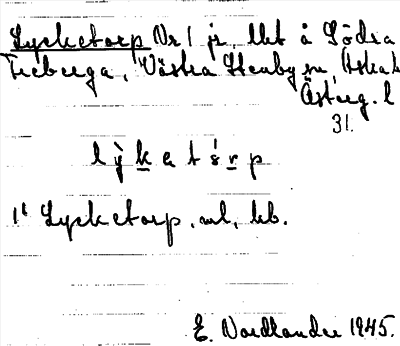 Lycketorp Nr 1 jr, lht å Södra
Freberga, Västra Stenby sn, Aska h
Österg. l
31.
lỳkatśrp
1t Lycketorp, ml, kb.
E. Nordlander 1945.